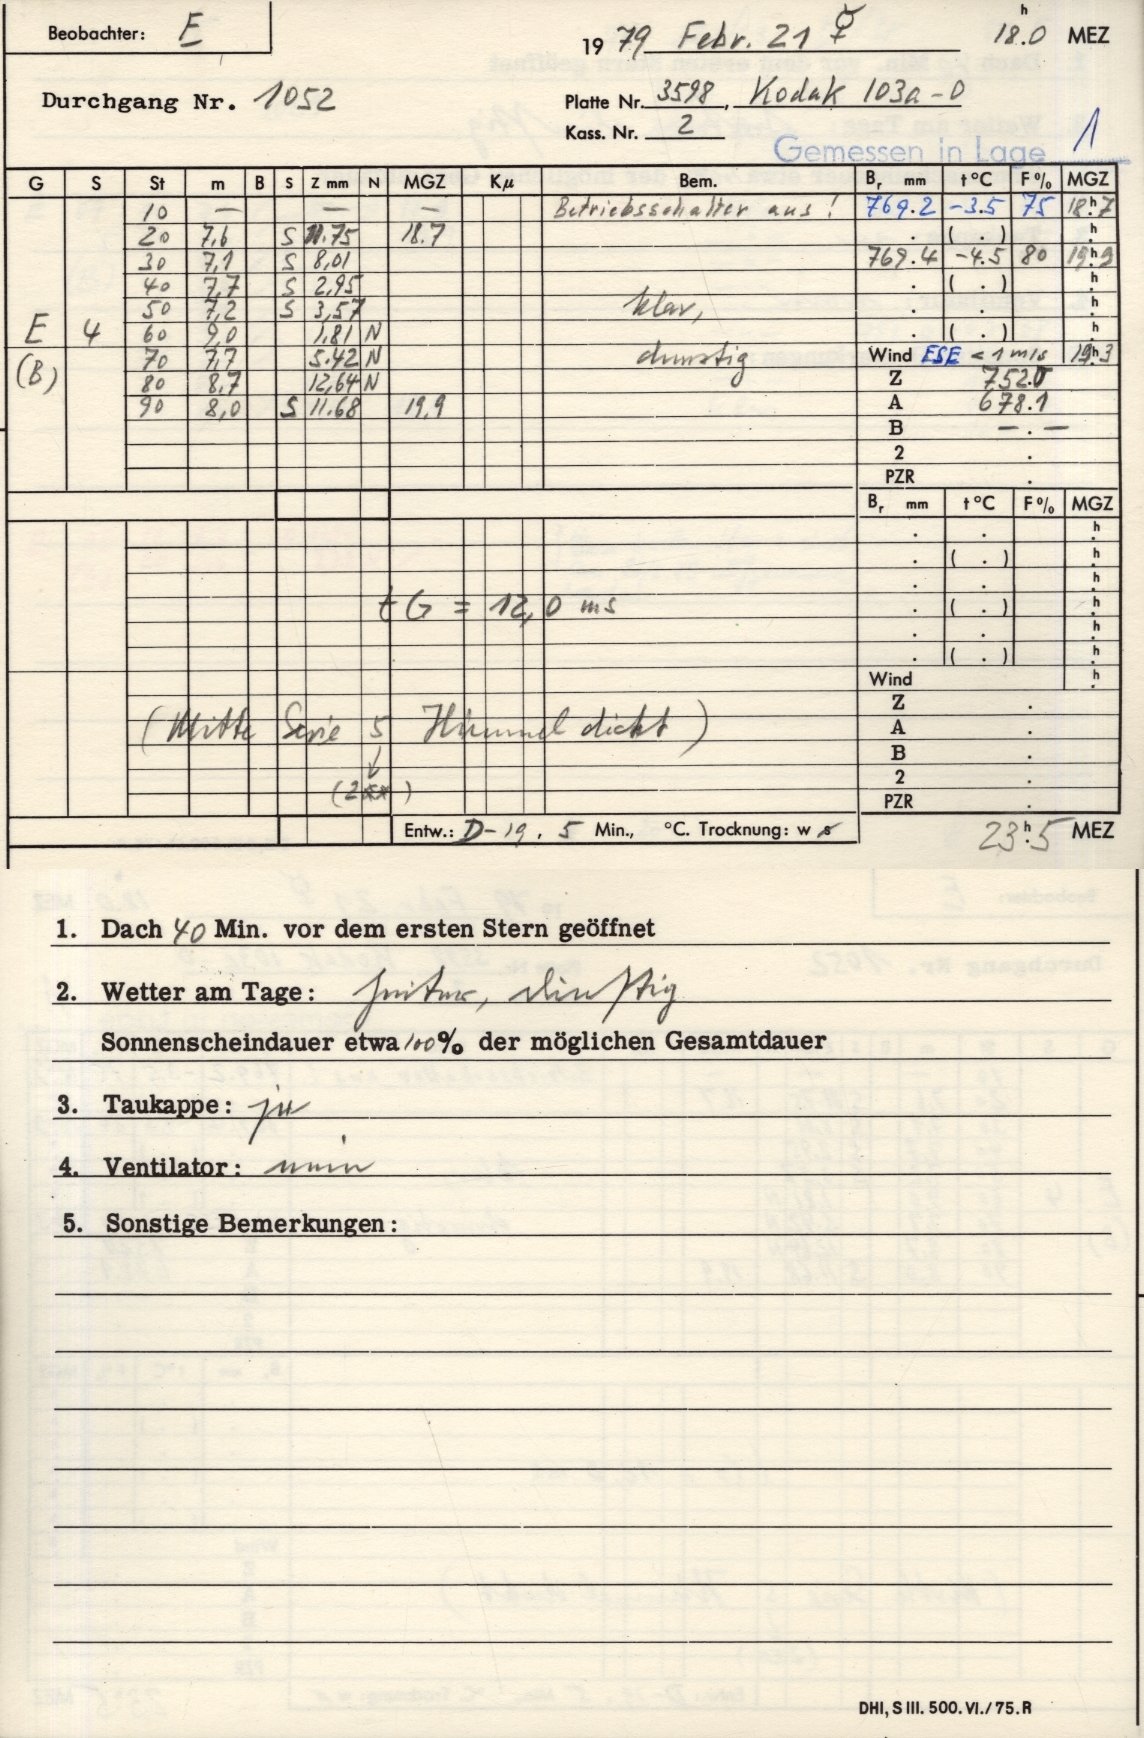 Beobachter: E
19 79 Febr. 21 ☿ 18.0 h MEZ
Durchgang Nr. 1052
Platte Nr. 3598, Kodak 103a-O
Kass. Nr. 2
Gemessen in Lage 1
G S St m B S Z mm N MGZ Kμ Bem. Br mm t°C F% MGZ
10 — — — Betriebsschalter aus! 769.2 -3.5 75 18h.7
20 7,6 S 11.75 18.7 . ( . ) h
30 7,1 S 8,01 769.4 -4.5 80 19h.9
40 7,7 S 2,95 . ( . ) h
50 7,2 S 3,57 klar, . . h
E 4 60 9,0 1.81 N . ( . ) h
(B) 70 7,7 5.42 N dunstig Wind ESE < 1 m/s 19h.3
80 8,7 12,64 N Z 752.0
90 8,0 S 11.68 19,9 A 678.1
B — . —
2 .
PZR .
Br mm t°C F% MGZ
. . h
. ( . ) h
. . h
tG = 12,0 ms . ( . ) h
. . h
. ( . ) h
Wind h
Z .
(Mitte Serie 5 Himmel dicht) A .
B .
2 .
(2xx) PZR .
Entw.: D-19. 5 Min., °C. Trocknung: w s 23h.5 MEZ
1. Dach 40 Min. vor dem ersten Stern geöffnet
2. Wetter am Tage: heiter, dunstig
Sonnenscheindauer etwa 100% der möglichen Gesamtdauer
3. Taukappe: ja
4. Ventilator: nein
5. Sonstige Bemerkungen:
DHI, S III. 500. VI./75. R